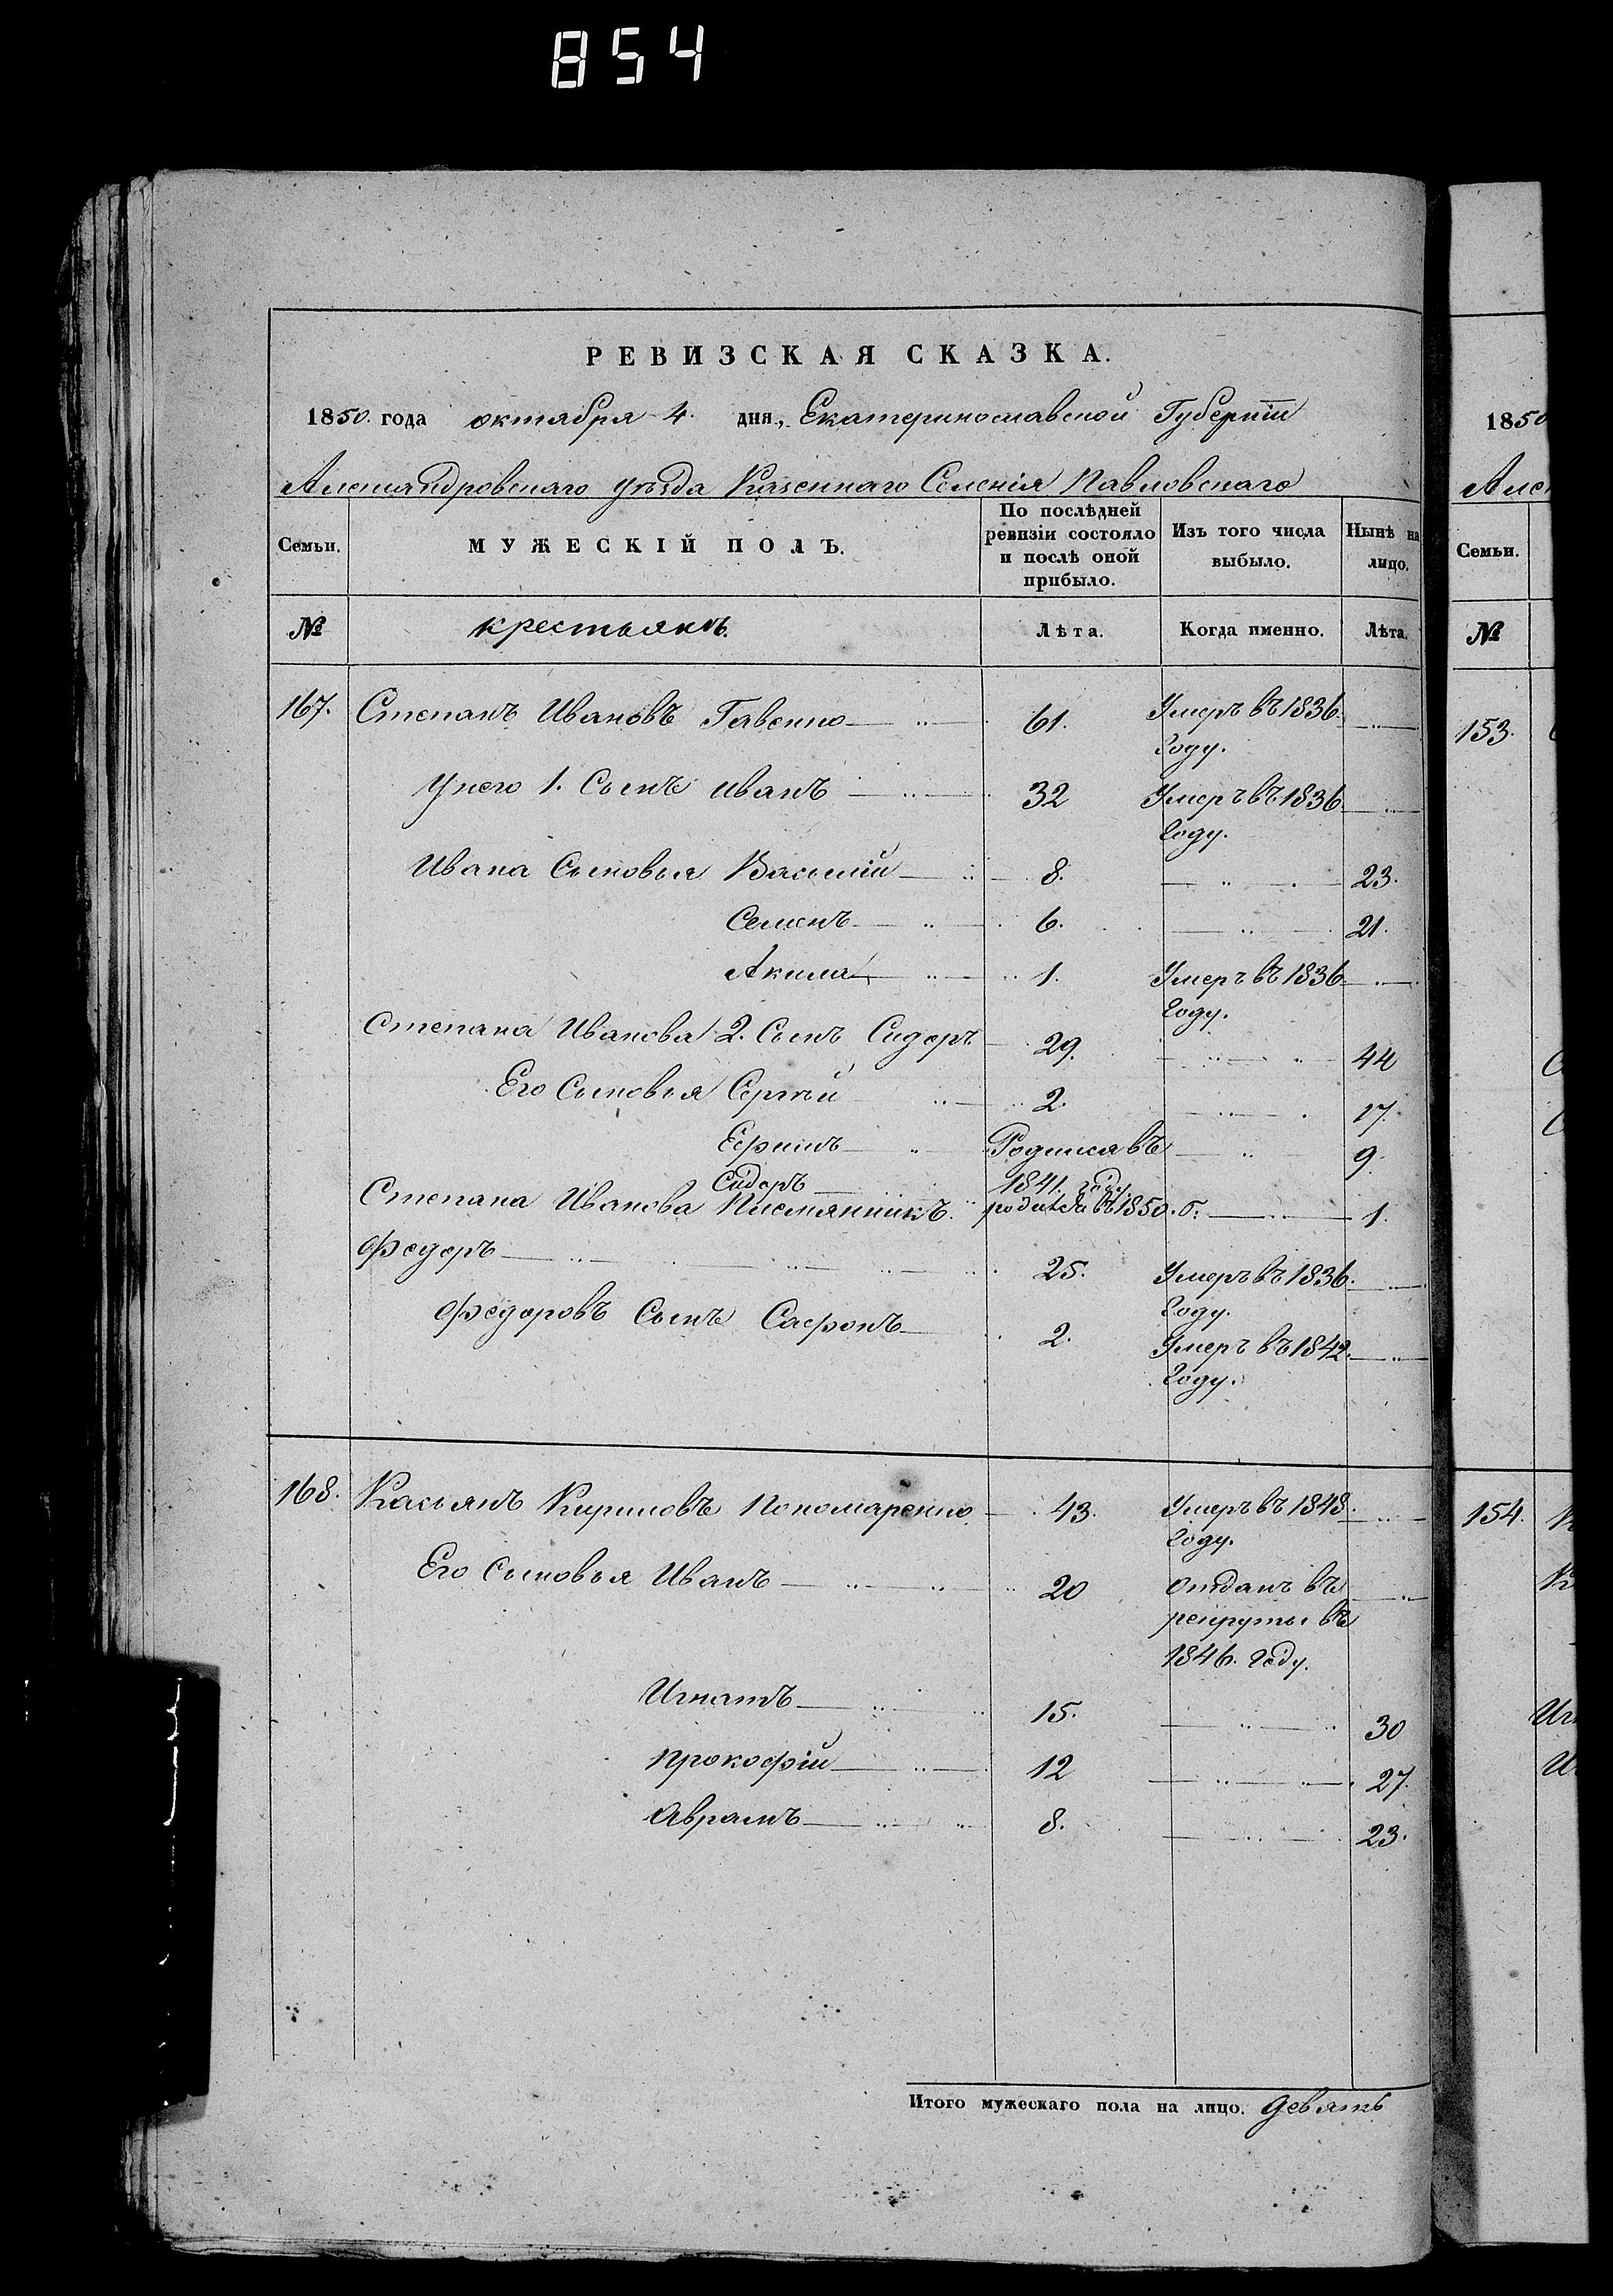 854
РЕВИЗСКАЯ СКАЗКА.
1850. года октября 4. дня, Екатеринославской Губерніи
Александровскаго уѣзда Казеннаго Селенія Павловскаго
Семьи. МУЖЕСКІЙ ПОЛЪ. По послѣдней ревизіи состояло и послѣ оной прибыло. Изъ того числа выбыло. Нынѣ на лицо.
№ крестьянъ. Лѣта. Когда именно. Лѣта.
167. Степанъ Ивановъ Гавенко 61. Умеръ въ 1836.
Году.
У него 1. Сынъ Иванъ 32 Умеръ въ 1836
Году.
Ивана Сыновья Василій 8. 23.
Семенъ 6. 21.
Акила 1. Умеръ въ 1836
Году.
Степана Иванова 2. Сынъ Сидоръ 29. 44
Его Сыновья Сергѣй 2. 17.
Ефимъ Родился въ 9.
1841. году
Сидоръ родился въ 1850. г. 1.
Степана Иванова Племянникъ
Федоръ 25. Умеръ въ 1836.
Году.
Федоровъ Сынъ Сафонъ 2. Умеръ въ 1842.
Году.
168. Касьянъ Кириловъ Пономаренко 43. Умеръ въ 1848.
Году.
Его Сыновья Иванъ 20 Отданъ въ
рекруты въ
1846. Году.
Игнатъ 15. 30
Прокофій 12 27.
Аврамъ 8. 23.
Итого мужескаго пола на лицо. Девять
1850
Семьи.
№
153.
154.